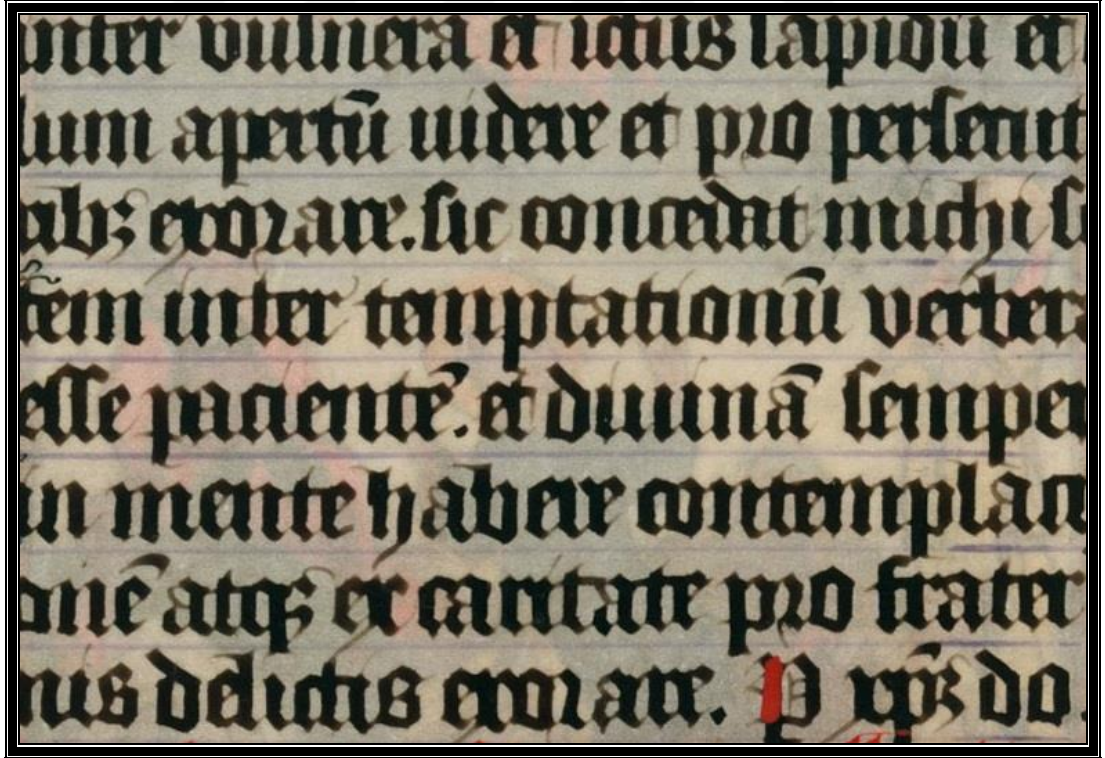 inter vulnera et ictus lapidū et
lum apertū uidere et pro persecut
ibꝫ exorare. sic concedat michi
tem inter temptationū verbera
esse pacientē. et diuinā semper
in mente habere contemplaci
onē atqꝫ ex caritate pro frater
nis delictis exorare. P xp̄ꝫ do